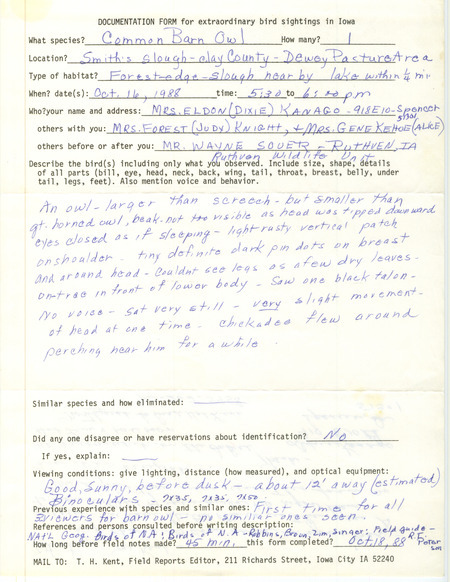 DOCUMENTATION FORM for extraordinary bird sightings in Iowa
What species? Common Barn Owl How many? 1
Location? Smith's Slough - Clay County - Dewey Pasture Area
Type of habitat? Forest-edge-slough near by lake within 1/4 mi
When? date(s): Oct. 16, 1988 time: 5:30 to 6:00 pm
Who?your name and address: MRS. ELDON (DIXIE) KANAGO - 918E10 - Spencer
51301
others with you: MRS. FOREST (JUDY) KNIGHT, + MRS. GENE KEHOE (ALICE)
others before or after you: MR. WAYNE SOUER - RUTHVEN, IA
Ruthven Wildlife Unit
Describe the bird(s) including only what you observed. Include size, shape, details
of all parts (bill, eye, head, neck, back, wing, tail, throat, breast, belly, under
tail, legs, feet). Also mention voice and behavior.
An owl - larger than screech - but smaller than
gt. horned owl, beak not too visible as head was tipped downward
eyes closed as if sleeping - light rusty vertical patch
on shoulder. tiny definite dark pin dots on breast
and around head - Couldnt see legs as a few dry leaves
on tree in front of lower body - Saw one black talon -
No voice - Sat very still - very slight movement
of head at one time. chickadee flew around
perching near him for a while.
Similar species and how eliminated:
Did any one disagree or have reservations about identification? No
If yes, explain:
Viewing conditions: give lighting, distance (how measured), and optical equipment:
Good, Sunny, before dusk - about 12' away (estimated)
Binoculars - 7x35, 7x35, 7x50
Previous experience with species and similar ones: First time for all
3 viewers for barn owl - no similiar ones seen.
References and persons consulted before writing description:
Nat'l Geog. Birds of N.A.; Birds of N.A. - Robbins, Bruun, Zim, Singer; Field Guide -
R.T. Peterson
How long before field notes made? 45 min. this form completed? Oct. 18, 88
MAIL TO: T. H. Kent, Field Reports Editor, 211 Richards Street, Iowa City IA 52240